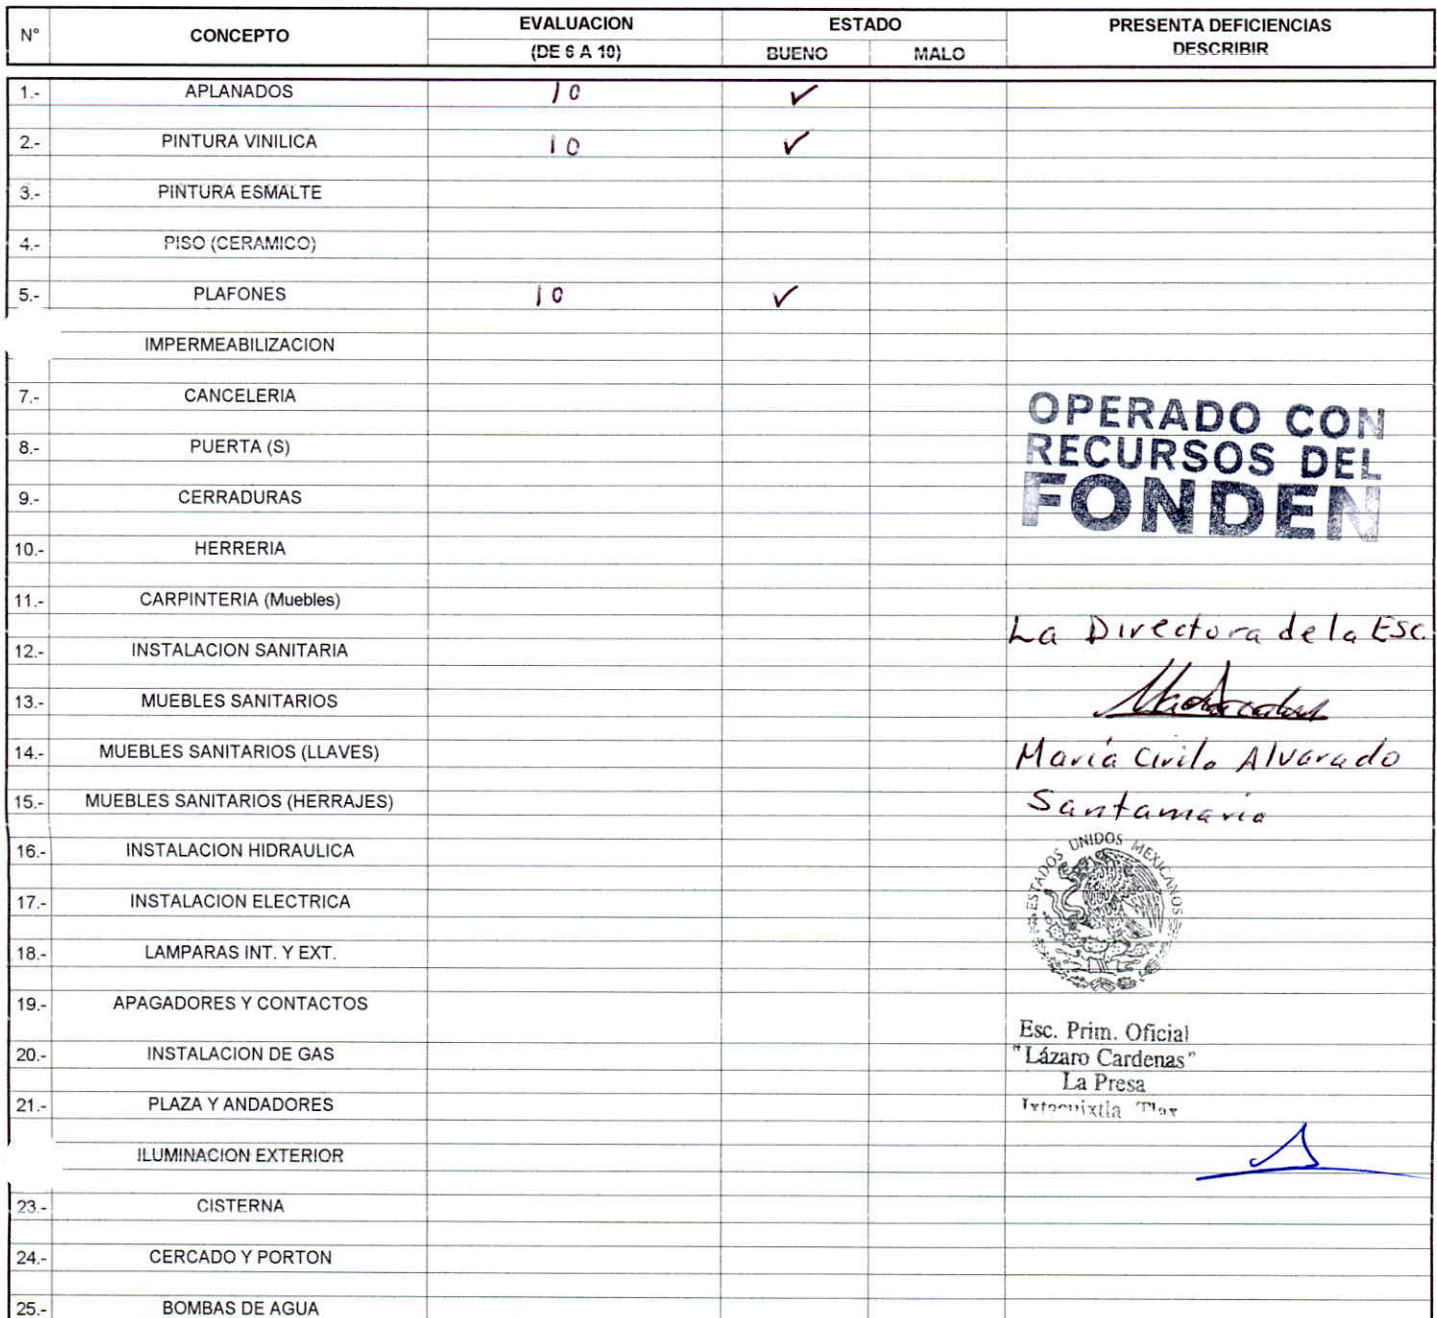 N° CONCEPTO EVALUACION ESTADO PRESENTA DEFICIENCIAS
(DE 6 A 10) BUENO MALO DESCRIBIR
1.- APLANADOS 10 ✓
2.- PINTURA VINILICA 10 ✓
3.- PINTURA ESMALTE
4.- PISO (CERAMICO)
5.- PLAFONES 10 ✓
IMPERMEABILIZACION
7.- CANCELERIA
8.- PUERTA (S)
9.- CERRADURAS
10.- HERRERIA
11.- CARPINTERIA (Muebles)
12.- INSTALACION SANITARIA
13.- MUEBLES SANITARIOS
14.- MUEBLES SANITARIOS (LLAVES)
15.- MUEBLES SANITARIOS (HERRAJES)
16.- INSTALACION HIDRAULICA
17.- INSTALACION ELECTRICA
18.- LAMPARAS INT. Y EXT.
19.- APAGADORES Y CONTACTOS
20.- INSTALACION DE GAS
21.- PLAZA Y ANDADORES
ILUMINACION EXTERIOR
23.- CISTERNA
24.- CERCADO Y PORTON
25.- BOMBAS DE AGUA
OPERADO CON
RECURSOS DEL
FONDEN
La Directora de la Esc.
María Cirila Alvarado
Santamaria
ESTADOS UNIDOS MEXICANOS
Esc. Prim. Oficial
"Lázaro Cardenas"
La Presa
Ixtacuixtla Tlax